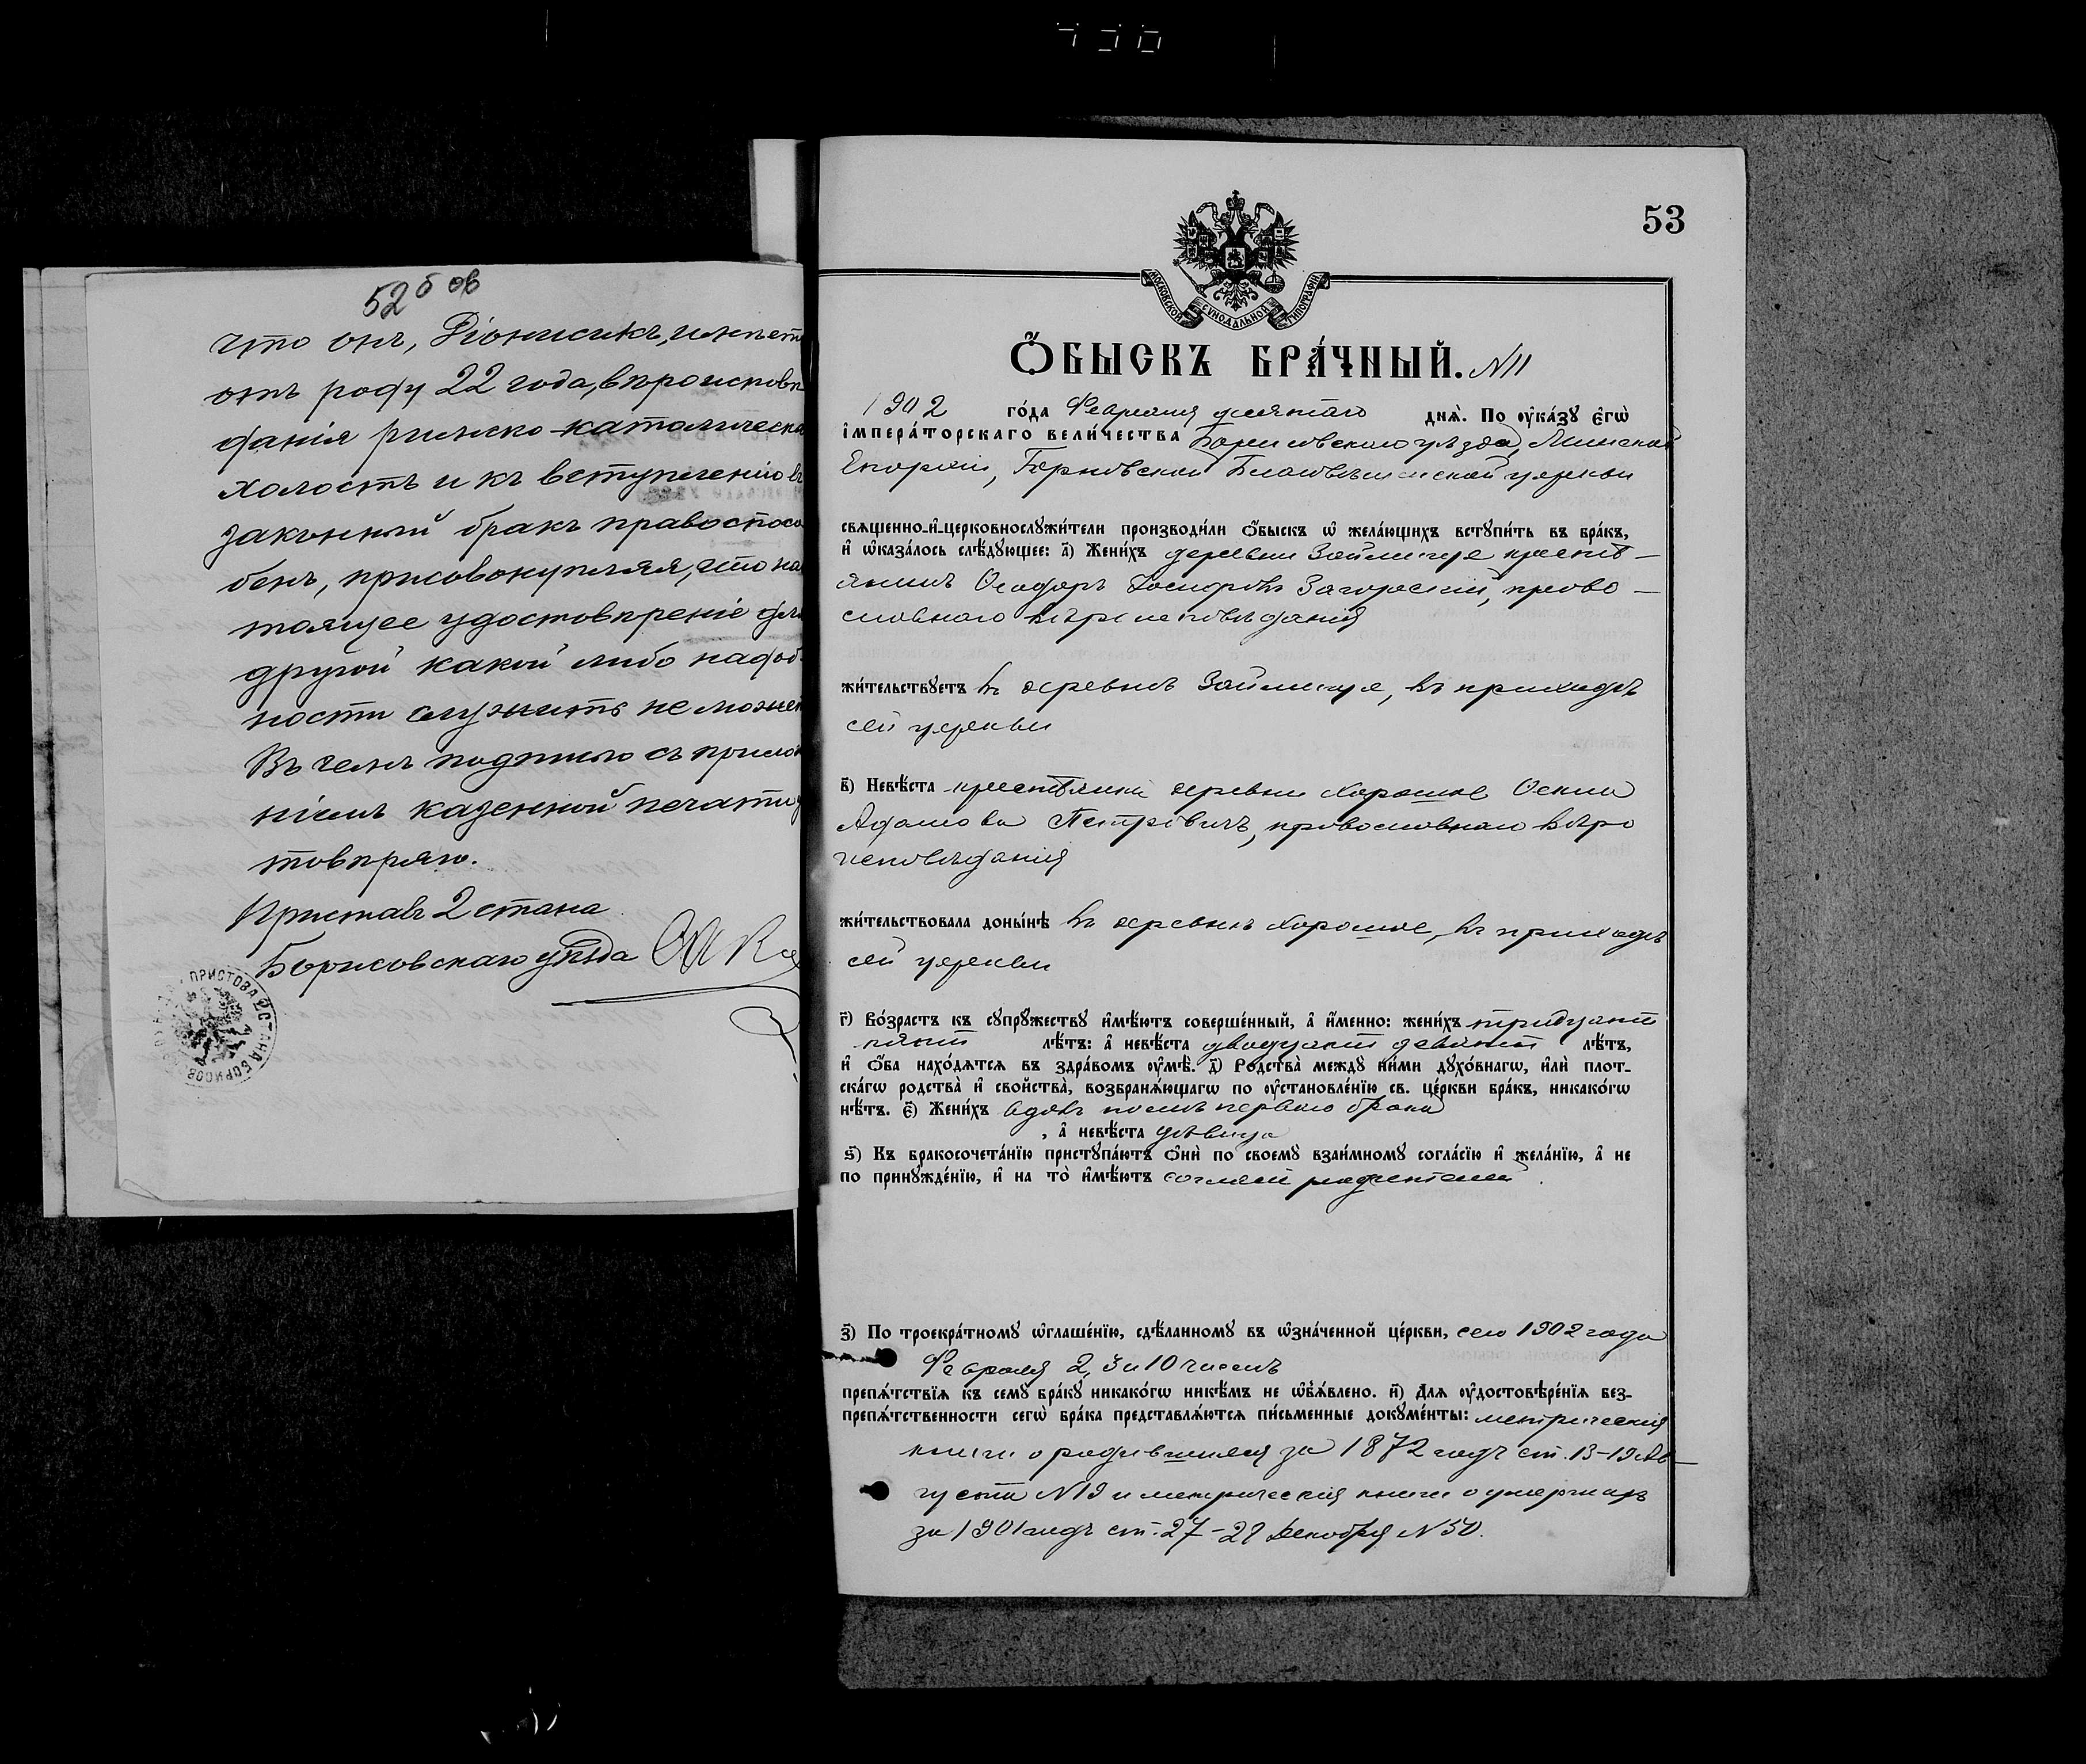 52 б ов
что онъ, Діонисикъ, имѣетъ
отъ роду 22 года, вѣроисповѣ
данія римско-католическа
холостъ и къ вступленію въ
законный бракъ правоспосо
бенъ, присовокупляя, что нас
тоящее удостовѣреніе для
другой какой либо надоб-
ности служить не может
Въ чемъ подписью съ прилож
ніемъ казенной печати у
товѣряю.
Приставъ 2 стана
Борисовскаго уѣзда
53
МОСКОВСКОЙ СѴНОДАЛЬНОЙ ТИПОГРАФІИ
Ѻ҆БЫСКЪ БРА́ЧНЫЙ. N11
1902 го́да Февраля десятаго днѧ̀. По ᲂу҆ка́зꙋ є҆гѡ̀
і҆мпера́торскаго вели́чества Борисовскаго уѣзда, Минской
Епархіи, Благовѣщенской церкви
свѧщенно-и҆-церковнослꙋжи́тели производи́ли ѻ҆́быскъ ѡ҆ жела́ющихъ встꙋпи́ть въ бра́къ,
и҆ ѡ҆каза́лось слѣ́дꙋющее: а҃) Жени́хъ деревни Займище крестѣ-
янинъ Ѳеодоръ Іосифовъ Загорскій, право-
славнаго вѣроисповѣданія
жи́тельствꙋетъ въ деревнѣ Займище, въ приходѣ
сей церкви
в҃) Невѣ́ста крестьянка деревни Хорошее Ксенія
Адамова Петровичъ, православнаго вѣро
исповѣданія
жи́тельствовала доны́нѣ въ деревнѣ Хорошее, въ приходѣ
сей церкви
г҃) Во́зрастъ къ сꙋпрꙋ́жествꙋ и҆мѣ́ютъ соверше́нный, а҆ и҆́менно: жени́хъ тридцати
пяти лѣ́тъ: а҆ невѣ́ста двадцати девяти лѣ́тъ,
и҆ ѻ҆́ба нахо́дѧтсѧ въ здра́вомъ ᲂу҆мѣ̀. д҃) Родства̀ междꙋ ни́ми дꙋхо́внагѡ, и҆лѝ плот-
ска́гѡ родства̀ и҆ свойства̀, возбранѧ́ющагѡ по ᲂу҆становле́нїю св. це́ркви бра́къ, никако́гѡ
нѣ́тъ. є҃) Жени́хъ вдовъ послѣ перваго брака
, а҆ невѣ́ста дѣвица
ѕ҃) Къ бракосочета́нїю пристꙋпа́ютъ ѻ҆нѝ по своемꙋ̀ взаи́мномꙋ согла́сїю и҆ жела́нїю, а҆ не
по принꙋжде́нїю, и҆ на то̀ и҆мѣ́ютъ согласіе родителей.
з҃) По троекра́тномꙋ ѡ҆глаше́нїю, сдѣ́ланномꙋ въ ѡ҆зна́ченной це́ркви, сего 1902 года
Февраля 2, 3 и 10 чиселъ
препѧ́тствїѧ къ семꙋ̀ бра́кꙋ никако́гѡ никѣ́мъ не ѡ҆б̾ѧ́влено. и҃) Длѧ ᲂу҆достовѣре́нїѧ без-
препѧ́тственности сегѡ̀ бра́ка представлѧ́ютсѧ пи́сьменные докꙋме́нты: метрическія
книги о родившихся за 1872 годъ ст. 13-19 Ав-
густа N19 и метрическія книги о умершихъ
за 1901 годъ ст. 27-29 Декабря N50.